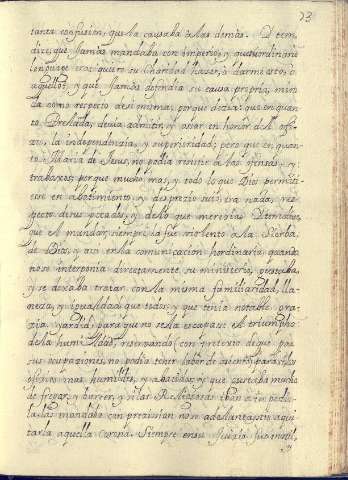 73
tanta confusion, que la causaba à las demàs. Y tem
dize, que jamàs mandaba con imperio, y que su ordinario
lenguaje era: quiere su Charidad hazer, ò darme esto, ò
aquello? y que jamàs defendia su causa propria, miran
dola como respecto de si misma, porque dezia: que en quan
to Prelada, devia admitir, y usar en honor del offi-
cio, la independenzia, y superioridad; pero que en quan-
to Maria de Jesus, no podia resistir a las ofensas, y
trabaxos; porque mucho mas, y todo lo que Dios permiti-
esse en abatimiento, y desprezio suio, era nada, res-
pecto de sus peccados, y de lo que merezia
que el mandar, siempre la fue violento à la Sierba
de Dios, y assi en la comunicazion hordinaria, quando
no se interponia directamente su ministerio, gustaba,
y se dexaba tratar con la misma familiaridad, lla-
neza, y igualdad que todos, y que tenia notable gra-
zia para que no se la escapase el triumpho
de la humildad, reserbando (con pretexto de que por
sus ocupaziones, no podia tener labor de asiento) para si, los
ofizios mas humildes, y abatidos, y que gustaba mucho
de fregar, y barrer, y si las Religiosas iban a impedir-
la, las mandaba con prezision no se adelantassen à qui-
tarla aquella Corona. Siempre en su juizio